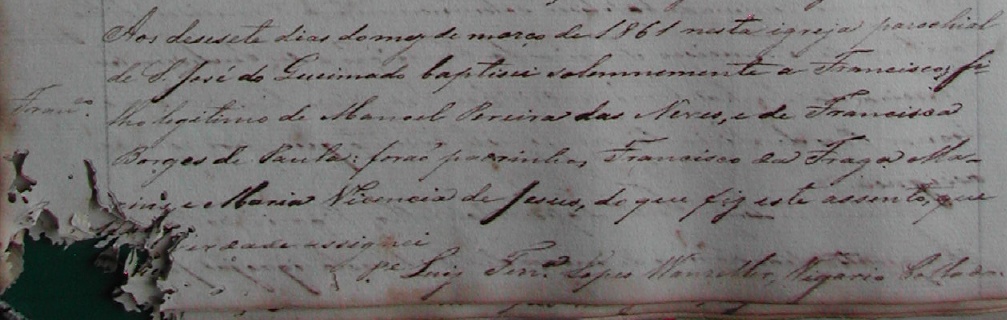 Aos desesete dias do mez de março de 1861 nesta igreja parochial
de S. José do Queimado baptisei solemnemente a Francisco, fi-
Franc.co
lho legitimo de Manoel Pereira das Neves, e de Francisca
Borges de Paula; forão padrinhos, Francisco da Fraga Ma-
e Maria Vicencia de Jesus, do que fiz este assento, que
verdade assignei
P.e Luiz Fer.a Lopes Wanzeller, Vigario